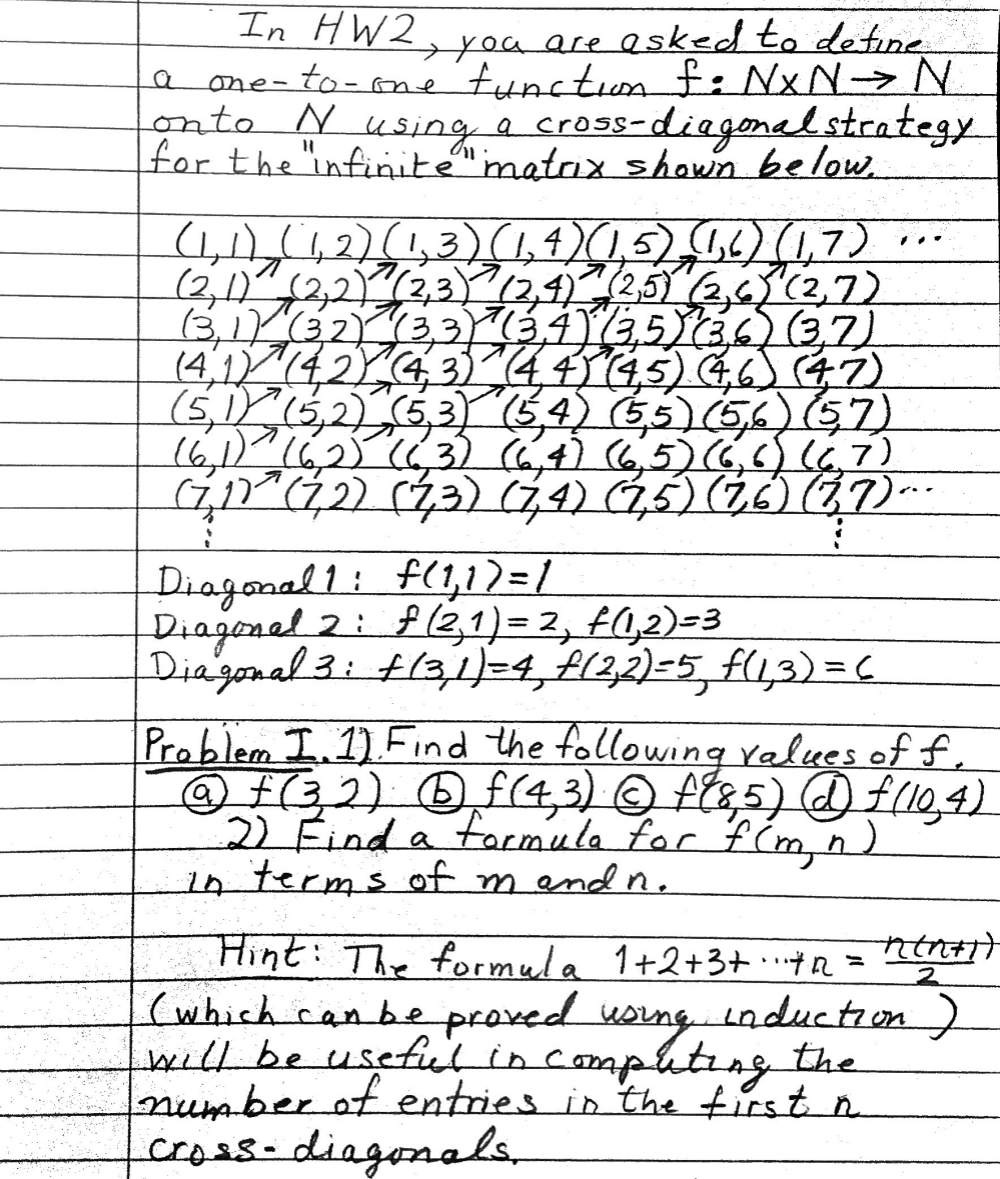 In HW2, you are asked to define
a one-to-one function f: N×N → N
onto N using a cross-diagonal strategy
for the "infinite" matrix shown below.
(1,1) (1,2) (1,3) (1,4) (1,5) (1,6) (1,7) ...
(2,1) (2,2) (2,3) (2,4) (2,5) (2,6) (2,7)
(3,1) (3,2) (3,3) (3,4) (3,5) (3,6) (3,7)
(4,1) (4,2) (4,3) (4,4) (4,5) (4,6) (4,7)
(5,1) (5,2) (5,3) (5,4) (5,5) (5,6) (5,7)
(6,1) (6,2) (6,3) (6,4) (6,5) (6,6) (6,7)
(7,1) (7,2) (7,3) (7,4) (7,5) (7,6) (7,7) ...
Diagonal 1: f(1,1)=1
Diagonal 2: f(2,1)=2, f(1,2)=3
Diagonal 3: f(3,1)=4, f(2,2)=5, f(1,3)=6
Problem I. 1) Find the following values of f.
ⓐ f(3,2) ⓑ f(4,3) ⓒ f(8,5) ⓓ f(10,4)
2) Find a formula for f(m,n)
in terms of m and n.
Hint: The formula 1+2+3+...+n = n(n+1)/2
(which can be proved using induction)
will be useful in computing the
number of entries in the first n
cross-diagonals.